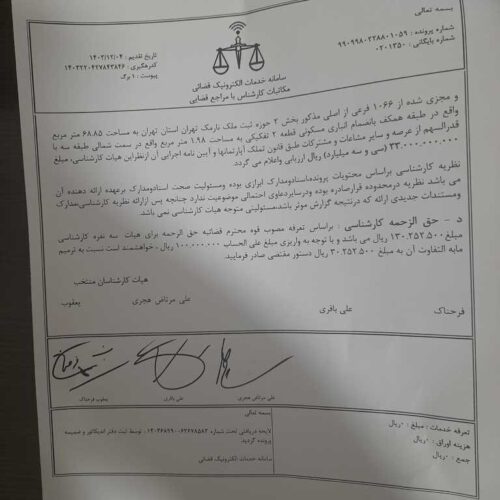 بسمه تعالی
شماره پرونده : ۹۹۰۹۹۸۰۲۲۸۸۰۱۰۵۹
شماره بایگانی : ۰۲۰۱۳۵۰
سامانه خدمات الکترونیک قضائی
مکاتبات کارشناس با مراجع قضایی
تاریخ تقدیم : ۱۴۰۳/۱۲/۰۴
کدرهگیری : ۱۴۰۳۲۲۰۴۲۷۸۴۳۸۴۶
پیوست : ۱ برگ
و مجزی شده از ۱۰۶۶ فرعی از اصلی مذکور بخش ۲ حوزه ثبت ملک نارمک تهران استان تهران به مساحت ۶۸.۸۵ متر مربع
واقع در طبقه همکف بانضمام انباری مسکونی قطعه ۲ تفکیکی به مساحت ۱.۹۸ متر مربع واقع در سمت شمالی طبقه سه با
قدرالسهم از عرصه و سایر مشاعات و مشترکات طبق قانون تملک آپارتمانها و آیین نامه اجرایی آن ازنظراین هیات کارشناسی، مبلغ
۳۳.۰۰۰.۰۰۰.۰۰۰ (سی و سه میلیارد) ریال ارزیابی واعلام می گردد.
نظریه کارشناسی براساس محتویات پرونده،اسنادومدارک ابرازی بوده ومسئولیت صحت اسنادومدارک برعهده ارائه دهنده آن
می باشد نظریه درمحدوده قرارصادره بوده ودرسایردعاوی احتمالی موضوعیت ندارد چنانچه پس ازارائه نظریه کارشناسی،مدارک
ومستندات جدیدی ارائه که درنتیجه گزارش موثر باشد،مسئولیتی متوجه هیات کارشناسی نمی باشد.
د - حق الزحمه کارشناسی : براساس تعرفه مصوب قوه محترم قضائیه حق الزحمه برای هیات سه نفره کارشناسی
مبلغ ۱۳۰.۲۵۲.۵۰۰ ریال می باشد و با توجه به واریزی مبلغ علی الحساب ۱۰۰.۰۰۰.۰۰۰ ریال ، خواهشمند است نسبت به ترمیم
مابه التفاوت آن به مبلغ ۳۰.۲۵۲.۵۰۰ ریال دستور مقتضی صادر فرمایید.
هیات کارشناسان منتخب
فرحناک علی باقری علی مرتاض هجری یعقوب
علی مرتاض هجری
علی باقری
یعقوب فرحناک
تعرفه خدمات : مبلغ : ۰ریال
هزینه اوراق : ۰ریال
جمع : ۰ریال
بسمه تعالی
لایحه دریافتی تحت شماره ۱۴۰۳۶۸۹۹۰۰۶۲۶۷۸۵۸۲ توسط ثبت دفتر اندیکاتور و ضمیمه
پرونده گردید.
سامانه خدمات الکترونیک قضائی